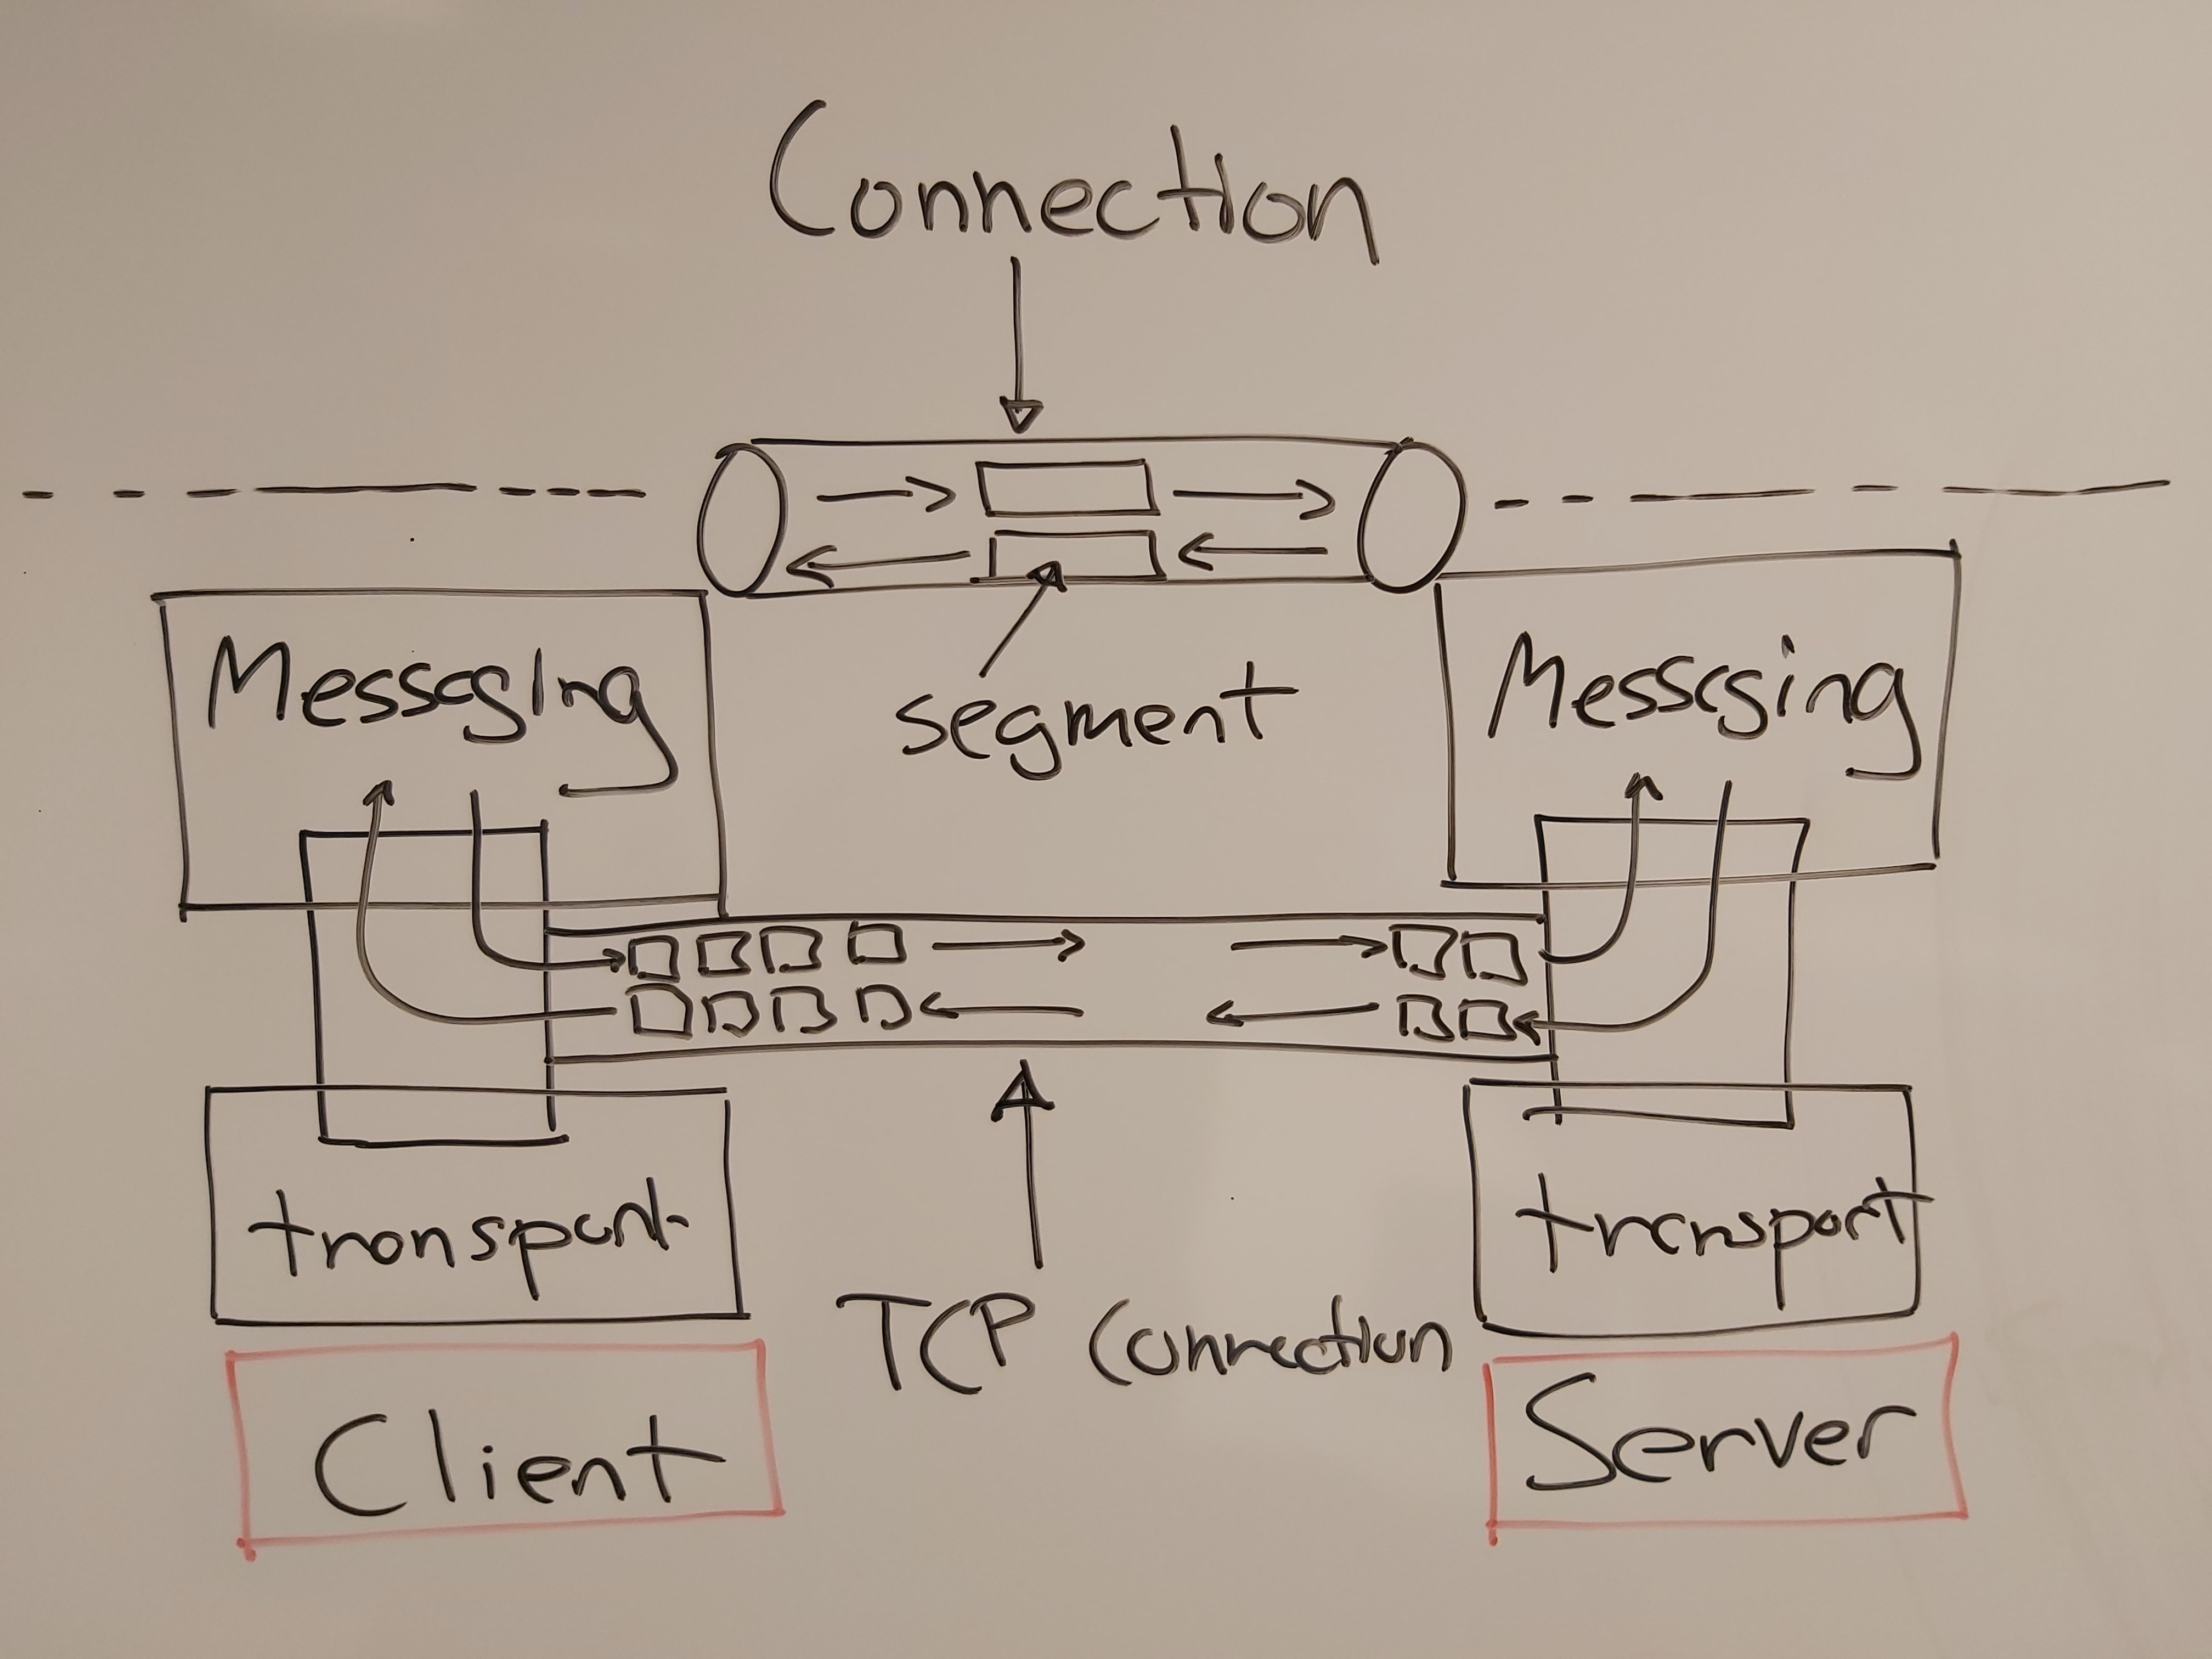 Connection
Messaging
segment
Messaging
transport
transport
TCP Connection
Client
Server